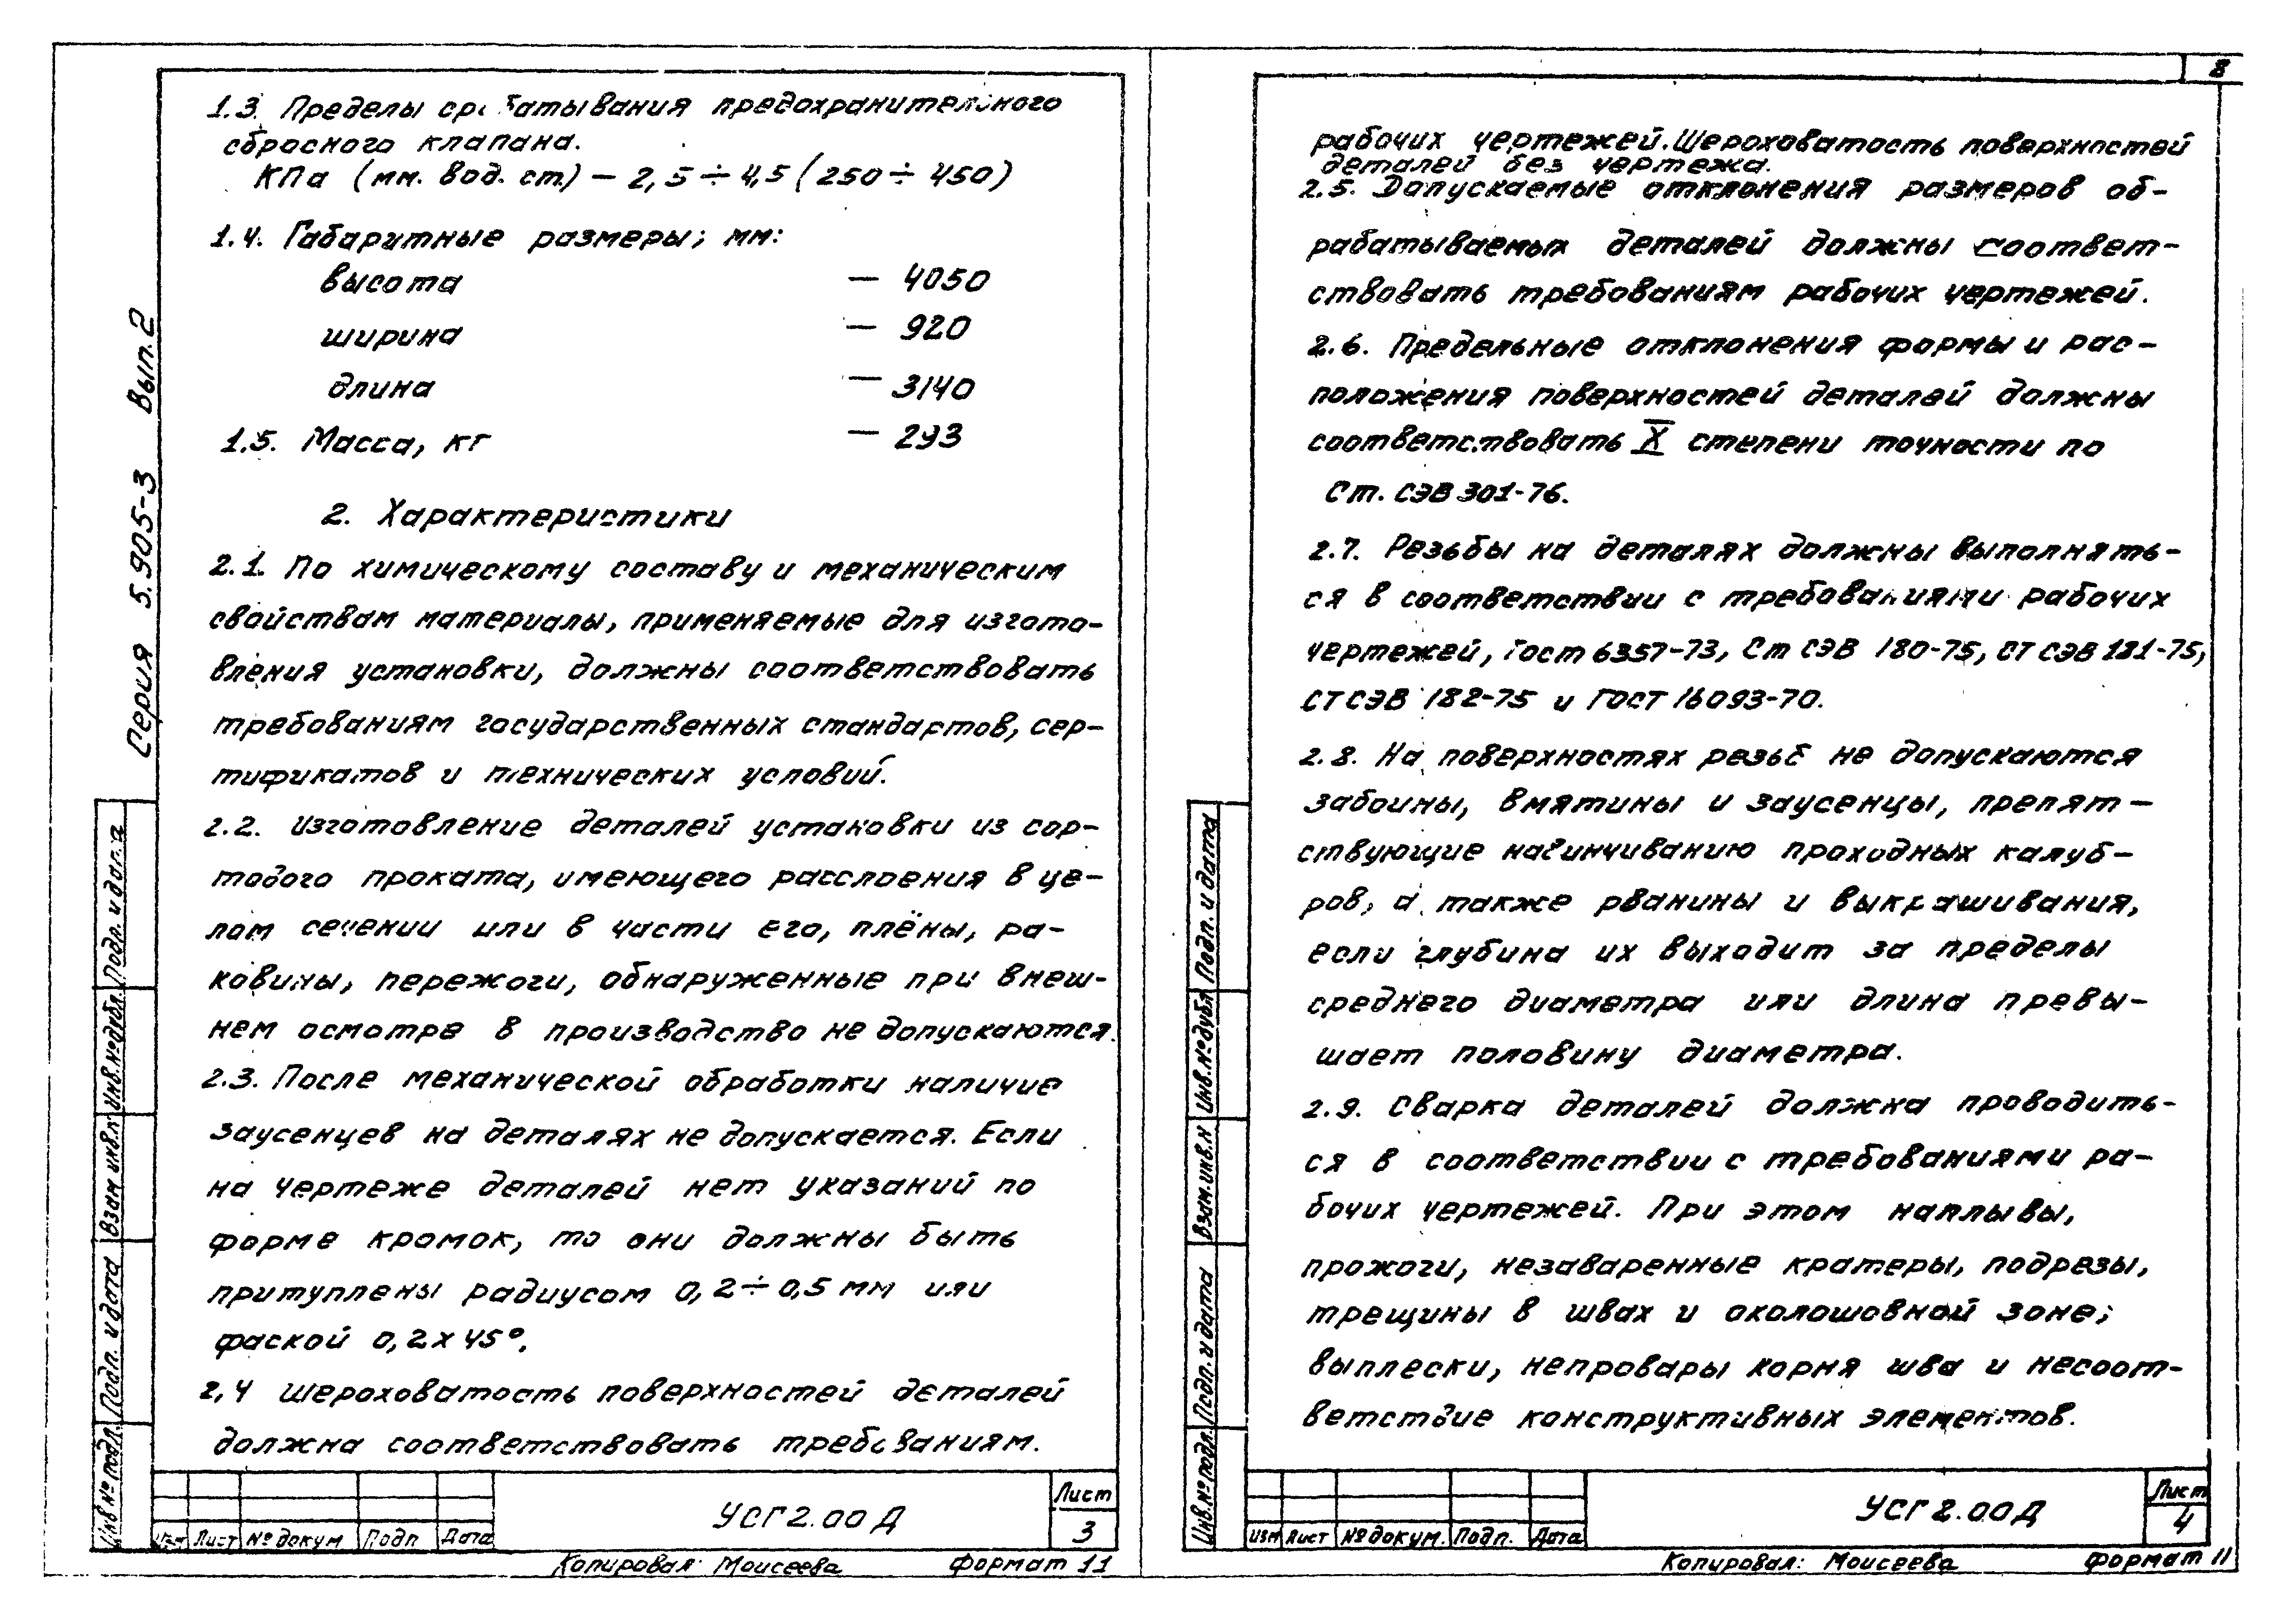 1.3. Пределы срабатывания предохранительного
сбросного клапана.
КПа (мм. вод. ст.) – 2,5÷4,5 (250÷450)
1.4. Габаритные размеры; мм:
высота – 4050
ширина – 920
длина – 3140
1.5. Масса, кг – 293
2. Характеристики
2.1. По химическому составу и механическим
свойствам материалы, применяемые для изгото-
вления установки, должны соответствовать
требованиям государственных стандартов, сер-
тификатов и технических условий.
2.2. Изготовление деталей установки из сор-
тового проката, имеющего расслоения в це-
лом сечении или в части его, плёны, ра-
ковины, пережоги, обнаруженные при внеш-
нем осмотре в производство не допускаются.
2.3. После механической обработки наличие
заусенцев на деталях не допускается. Если
на чертеже деталей нет указаний по
форме кромок, то они должны быть
притуплены радиусом 0,2÷0,5 мм или
фаской 0,2х45°.
2,4 Шероховатость поверхностей деталей
должна соответствовать требованиям.
Серия 5.905-3 Вып.2
Подп. и дата
Инв.№дубл.
Взам инв.№
Подп. и дата
Инв №подл.
Изм Лист №докум Подп Дата
УСГ2.00Д
Лист
3
Копировал: Моисеева Формат 11
8
рабочих чертежей. Шероховатость поверхностей
деталей без чертежа.
2.5. Допускаемые отклонения размеров об-
рабатываемых деталей должны соответ-
ствовать требованиям рабочих чертежей.
2.6. Предельные отклонения формы и рас-
положения поверхностей деталей должны
соответствовать X степени точности по
Ст. СЭВ 301-76.
2.7. Резьбы на деталях должны выполнять-
ся в соответствии с требованиями рабочих
чертежей, Гост 6357-73, Ст СЭВ 180-75, СТ СЭВ 181-75,
СТ СЭВ 182-75 и ГОСТ 16093-70.
2.8. На поверхностях резьб не допускаются
забоины, вмятины и заусенцы, препят-
ствующие навинчиванию проходных калуб-
ров, а также рванины и выкрашивания,
если глубина их выходит за пределы
среднего диаметра или длина превы-
шает половину диаметра.
2.9. Сварка деталей должна проводить-
ся в соответствии с требованиями ра-
бочих чертежей. При этом наплывы,
прожоги, незаваренные кратеры, подрезы,
трещины в швах и околошовной зоне;
выплески, непровары корня шва и несоот-
ветствие конструктивных элементов.
Подп. и дата
Инв.№дубл
Взам.инв.№
Подп. и дата
Инв.№подл.
Изм Лист №докум. Подп. Дата
УСГ2.00Д
Лист
4
Копировал: Моисеева Формат 11